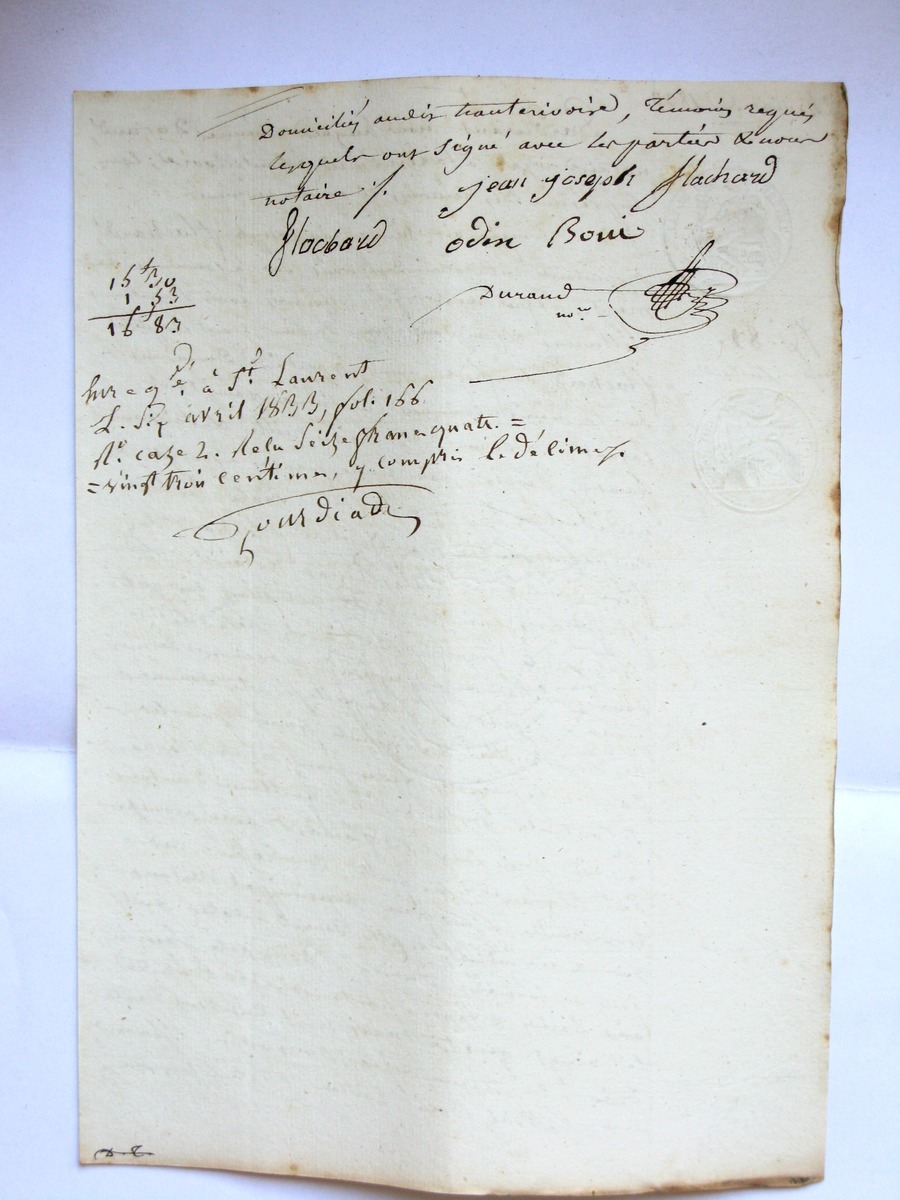 Domiciliés audit hauterivoire, témoins requis
lesquels ont signé avec les parties & nous
notaire ./.
jean joseph flachard
flachard odin Boni
15 f 30
1 53
16 f 83
Durand
nore
Enregé. à St. Laurent
L. Six avril 1833, fol. 166
Ro. case 2. Reçu Seize francs quatr. =
= vingt trois centimes, y compris le décime ./.
Gourdiad